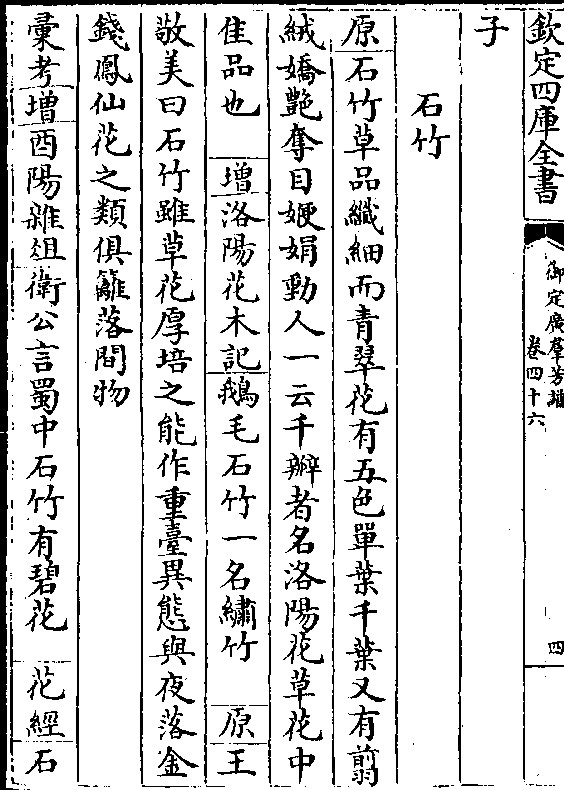 欽定四庫全書
御定廣羣芳譜
卷四十六
四
子
石竹
原石竹草品纖細而青翠花有五色單葉千葉又有翦
絨嬌艶奪目㛹娟動人一云千瓣者名洛陽花草花中
佳品也 增洛陽花木記鵝毛石竹一名繡竹 原王
敬美曰石竹雖草花厚培之能作重臺異態與夜落金
錢鳳仙花之類俱籬落間物
彚考增酉陽雜俎衛公言蜀中石竹有碧花 花經石